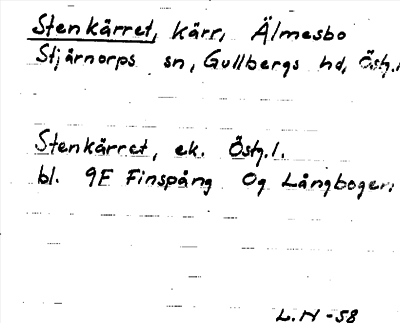 Stenkärret, kärr, Älmesbo
Stjärnorps sn, Gullbergs hd, Östg.l
Stenkärret, ek. Östg.l.
bl. 9F Finspång 0g Långbogen.
L.H -58